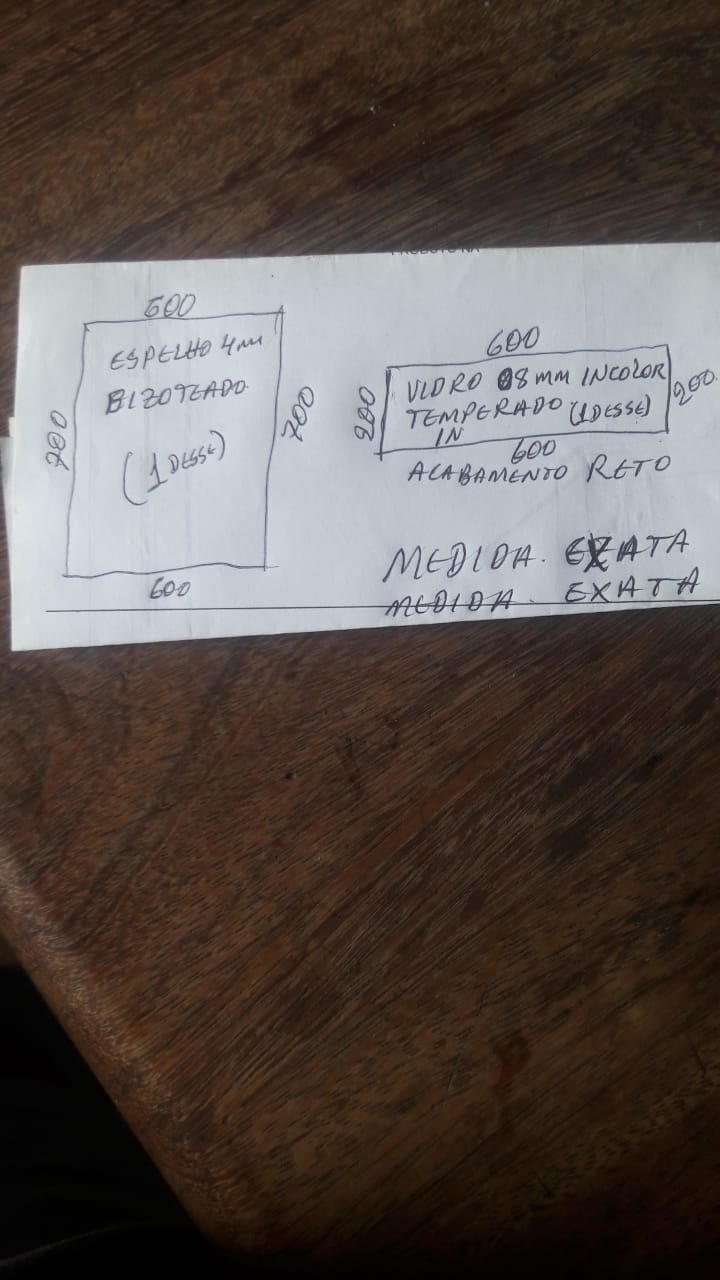 600
ESPELHO 4mm
BIZOTEADO
(1 DESSE)
700
700
600
600
VIDRO 08mm INCOLOR
TEMPERADO (1 DESSE)
IN
200
200.
600
ACABAMENTO RETO
MEDIDA. EXATA
MEDIDA. EXATA